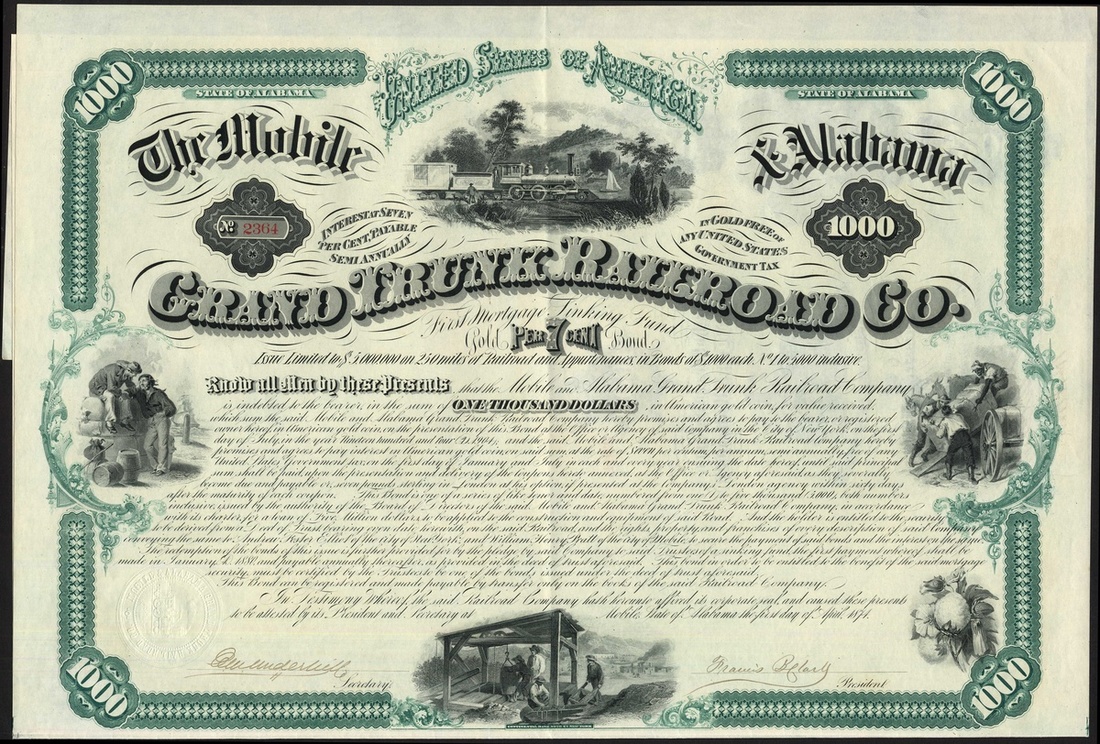 UNITED STATES OF AMERICA
1000
STATE OF ALABAMA
STATE OF ALABAMA
1000
The Mobile
& Alabama
No 2364
INTEREST AT SEVEN
PER CENT, PAYABLE
SEMI ANNUALLY
IN GOLD FREE OF
ANY UNITED STATES
GOVERNMENT TAX
1000
GRAND TRUNK RAILROAD CO.
First Mortgage Sinking Fund
Gold PER 7 CENT Bond
Issue Limited to $5,000,000 on 250 miles of Railroad and Appurtenances, in Bonds of $1,000 each, No 1 to 5000 inclusive.
Know all Men by these Presents that the Mobile and Alabama Grand Trunk Railroad Company
is indebted to the bearer, in the sum of ONE THOUSAND DOLLARS, in American gold coin, for value received,
which sum the said Mobile and Alabama Grand Trunk Railroad Company hereby promises and agrees to pay to the bearer, or registered
owner hereof, in American gold coin, on the presentation of this Bond at the Office or Agency of said company in the City of New York, on the first
day of July, in the year Nineteen hundred and four (A.D. 1904), and the said Mobile and Alabama Grand Trunk Railroad Company hereby
promises and agrees to pay interest in American gold coin, on said sum, at the rate of seven per centum, per annum, semi annually, free of any
United States Government tax, on the first day of January and July in each and every year ensuing the date hereof, until said principal
sum shall be paid, upon the presentation and delivery of the coupons hereto annexed, at the Office or Agency aforesaid, as they severally
become due and payable, or seven pounds sterling in London at his option, if presented at the Company's London agency within sixty days
after the maturity of each coupon. This Bond is one of a series of like tenor and date, numbered from one (1) to five thousand (5000), both numbers
inclusive, issued by the authority of the Board of Directors of the said Mobile and Alabama Grand Trunk Railroad Company, in accordance
with its charter for a loan of Five Million dollars to be applied to the construction and equipment of said Road. And the bearer is entitled to the security
to be derived from a Deed of Trust bearing even date herewith, on the said Railroad, and the rights, privileges and franchises of every description of said Company
conveying the same to Andrew Foster Elliot of the city of New York, and William Henry Pratt of the city of Mobile, to secure the payment of said bonds and the interest on the same.
The redemption of the bonds of this issue is further provided for by the pledge by said Company to said Trustees of a sinking fund, the first payment whereof shall be
made in January A.D. 1880, and payable annually thereafter, as provided in the deed of trust aforesaid. This bond in order to be entitled to the benefit of the said mortgage
security, must be certified by the Trustees to be one of the bonds issued under the deed of trust aforesaid.
This Bond can be registered and made payable by transfer only on the books of the said Railroad Company.
In Testimony Whereof, the said Railroad Company hath hereunto affixed its corporate seal, and caused these presents
to be attested by its President and Secretary at Mobile, State of Alabama the first day of April, 1874.
Secretary.
Francis B Clark
President
1000
1000